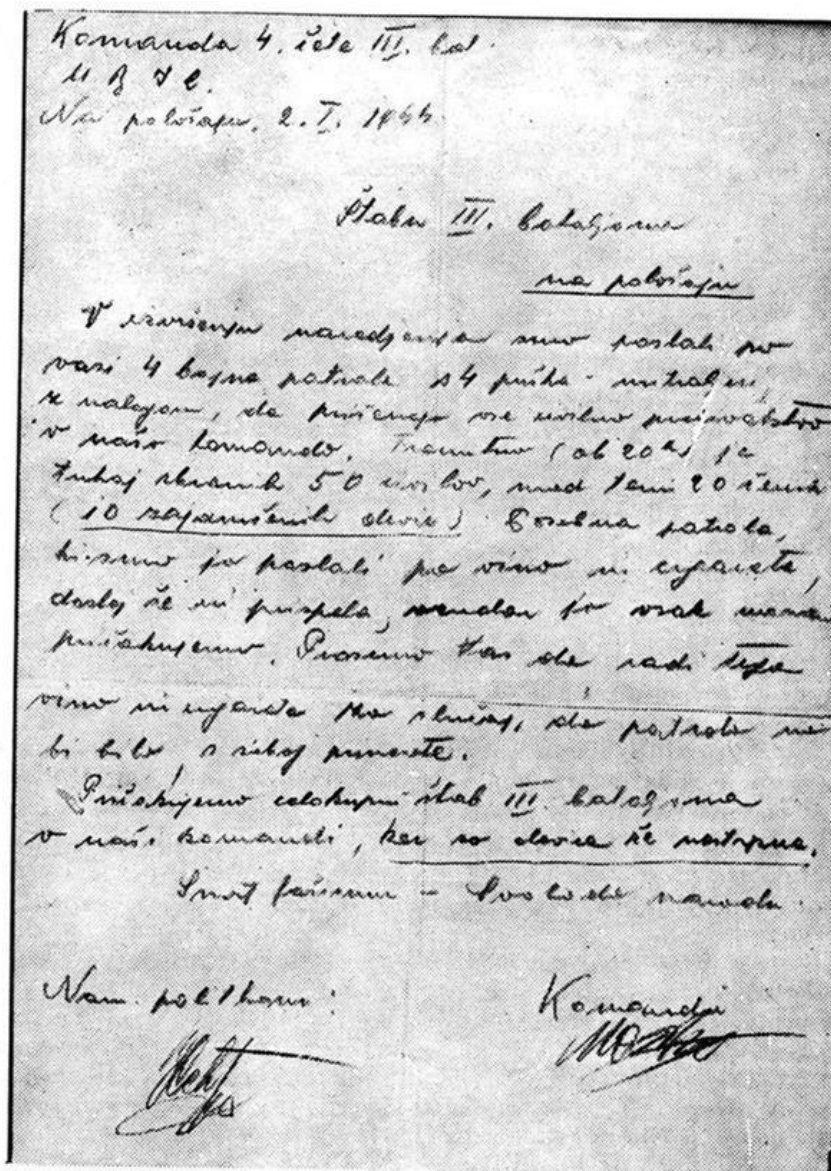 Komanda 4. čete III. bat.
Na položaju, 2. I. 1944
Štabu III. bataljona
na položaju
V izvršenju naredjenja smo poslali po
vasi 4 bojne patrole s 4 puško-mitraljezi
z nalogom, da priženejo vse civilno prebivalstvo
v našo komando. Trenutno (ob 20h) je
tukaj zbranih 50 civilov, med temi 20 žensk
(10 zajamčenih devic). Posebna patrola,
ki smo jo poslali po vino in cigarete,
doslej še ni prispela, vendar jo vsak
pričakujemo. Prosimo Vas da radi tega
vino in cigarete za slučaj, da patrola ne
bi bilo s seboj prinesete.
Pričakujemo celokupni štab III. bataljona
v naši komandi, ker so device že nestrpne.
Smrt fašizmu - Svoboda narodu
Nam. polit kom:
Komandir